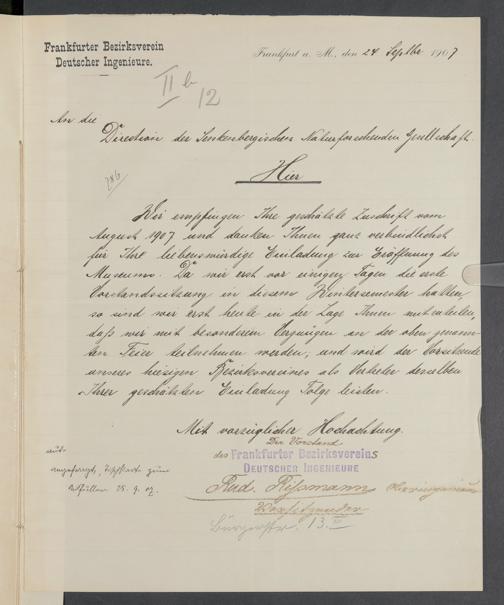 Frankfurter Bezirksverein
Deutscher Ingenieure.
Frankfurt a. M., den 24 Septbr 1907
II b
12
An die
Direction der Senkenbergischen Naturforschenden Gesellschaft.
Hier
Wir empfingen Ihre geschätzte Zuschrift vom
August 1907 und danken Ihnen ganz verbindlichst
für Ihre liebenswürdige Einladung zur Eröffnung des
Museums. Da wir erst vor einigen Tagen die erste
Vorstandssitzung in diesem Wintersemester hatten,
so sind wir erst heute in der Lage Ihnen mitzuteilen,
daß wir mit besonderem Vergnügen an der oben genann-
ten Feier teilnehmen werden, und wird der Vorsitzende
unseres hiesigen Bezirksvereines als Vertreter desselben
Ihrer geschätzten Einladung Folge leisten.
Mit vorzüglicher Hochachtung.
Der Vorstand
des Frankfurter Bezirksvereins
Deutscher Ingenieure
Rud. Rissmann Oberingenieur
Vorsitzender
Bürgerstr. 13
25. 9. 07.